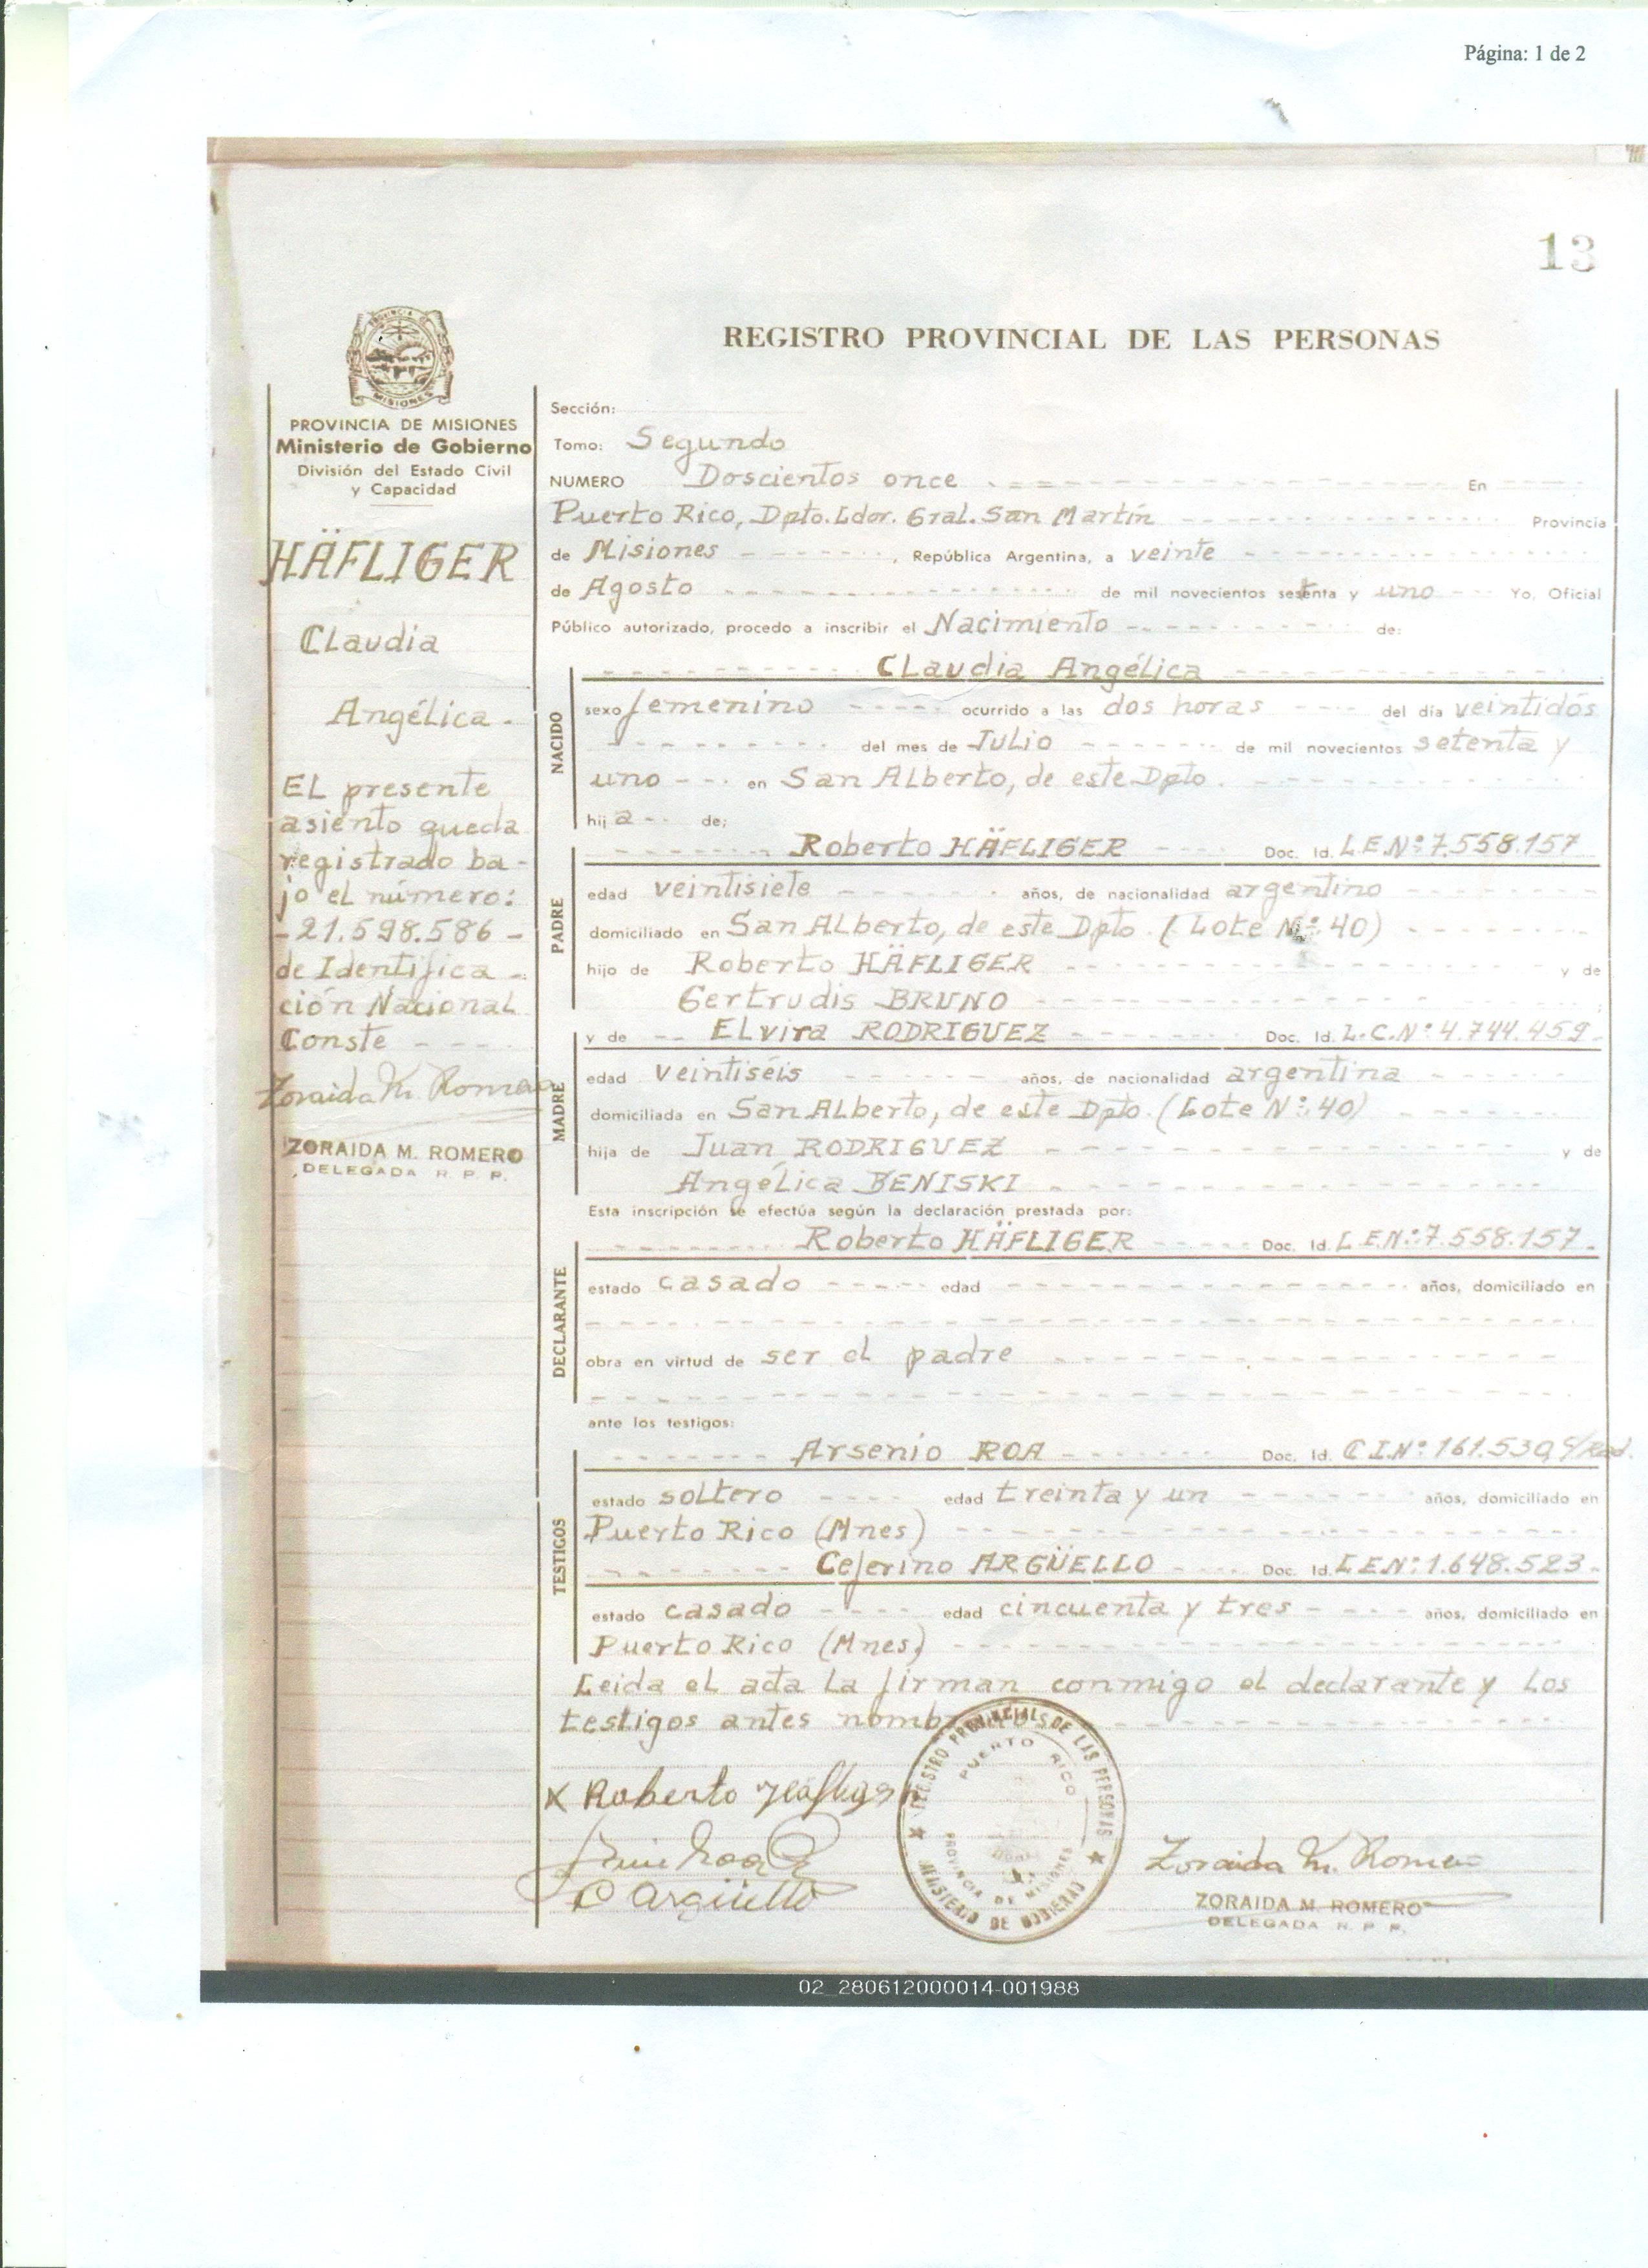 Página: 1 de 2
13
REGISTRO PROVINCIAL DE LAS PERSONAS
PROVINCIA DE MISIONES
Ministerio de Gobierno
División del Estado Civil
y Capacidad
HÄFLIGER
Claudia
Angélica -
El presente
asiento queda
registrado ba-
jo el número:
- 21.598.586 -
de Identifica-
ción Nacional
Conste - - -
Zoraida M. Romero
ZORAIDA M. ROMERO
DELEGADA R. P. P.
Sección:
Tomo: Segundo
NUMERO Doscientos once - - - En - - -
Puerto Rico, Dpto. Ldor. Gral. San Martín - - - Provincia
de Misiones - - - , República Argentina, a veinte - - -
de Agosto - - - de mil novecientos setenta y uno - - - Yo, Oficial
Público autorizado, procedo a inscribir el Nacimiento - - - de:
- - - Claudia Angélica - - -
NACIDO
sexo femenino - - - ocurrido a las dos horas - - - del día veintidós
- - - del mes de Julio - - - de mil novecientos setenta y
uno - - - en San Alberto, de este Dpto. - - -
hija - - de;
- - - Roberto HÄFLIGER - - - Doc. Id. L.E.Nº: 7.558.157
PADRE
edad veintisiete - - - años, de nacionalidad argentino - - -
domiciliado en San Alberto, de este Dpto. (Lote Nº: 40) - - -
hijo de Roberto HÄFLIGER - - - y de
Gertrudis BRUNO - - -
y de - - Elvira RODRIGUEZ - - - Doc. Id. L.C.Nº: 4.744.459-
MADRE
edad veintiséis - - - años, de nacionalidad argentina - - -
domiciliada en San Alberto, de este Dpto. (Lote Nº: 40) - - -
hija de Juan RODRIGUEZ - - - y de
Angélica BENISKI - - -
Esta inscripción se efectúa según la declaración prestada por:
- - - Roberto HÄFLIGER - - - Doc. Id. L.E.Nº: 7.558.157-
DECLARANTE
estado casado - - - edad - - - años, domiciliado en
- - -
obra en virtud de ser el padre - - -
- - -
ante los testigos:
- - - Arsenio ROA - - - Doc. Id. C.I.Nº: 161.530,
TESTIGOS
estado soltero - - - edad treinta y un - - - años, domiciliado en
Puerto Rico (Mnes) - - -
- - - Ceferino ARGÜELLO - - - Doc. Id. L.E.Nº: 1.648.523-
estado casado - - - edad cincuenta y tres - - - años, domiciliado en
Puerto Rico (Mnes) - - -
Leida el acta la firman conmigo el declarante y los
testigos antes nombrados - - -
X Roberto Hafliger
C Argüello
REGISTRO PROVINCIAL DE LAS PERSONAS
PUERTO RICO
PROVINCIA DE MISIONES
MINISTERIO DE GOBIERNO
Zoraida M. Romero
ZORAIDA M. ROMERO
DELEGADA R. P. P.
02_280612000014-001988